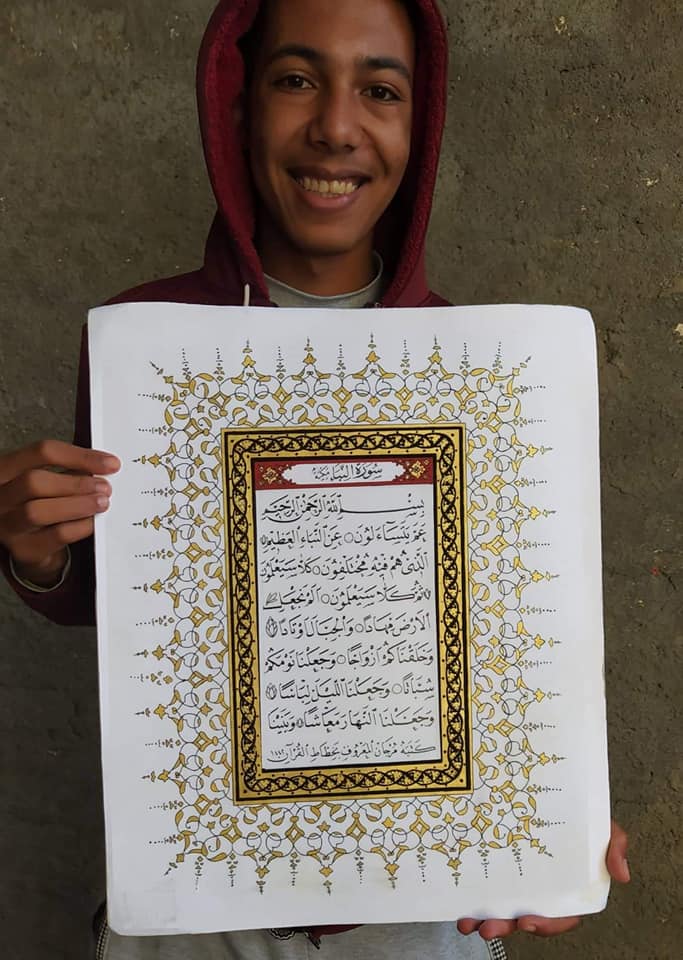 سورة النبأ مكية
بسم الله الرحمن الرحيم
عَمَّ يَتَسَآءَلُوْنَ عَنِ النَّبَاءِ الْعَظِيْمِ
الَّذِيْ هُمْ فِيْهِ مُخْتَلِفُوْنَ كَلَّا سَيَعْلَمُوْنَ
ثُمَّ كَلَّا سَيَعْلَمُوْنَ اَلَمْ نَجْعَلِ
الْاَرْضَ مِهَادًا وَّالْجِبَالَ اَوْتَادًا
وَّخَلَقْنَاكُمْ اَزْوَاجًا وَّجَعَلْنَا نَوْمَكُمْ
سُبَاتًا وَّجَعَلْنَا اللَّيْلَ لِبَاسًا
وَّجَعَلْنَا النَّهَارَ مَعَاشًا وَّبَنَيْنَا
كتبه مرجان المعروف بخطاط القرآن